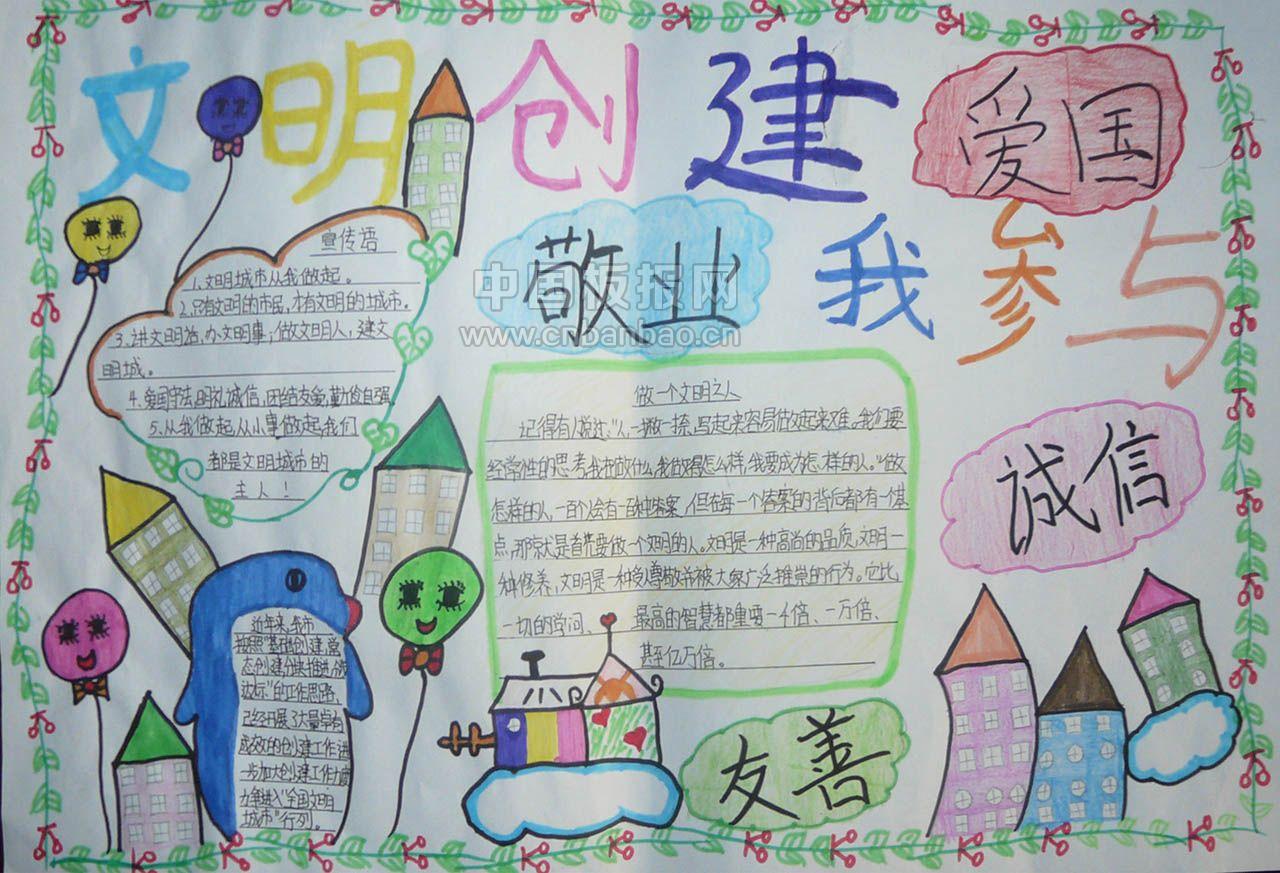 文明创建
我参与
爱国
敬业
诚信
友善
中国板报网
www.cnbanbao.cn
宣传语
1.文明城市从我做起。
2.只有文明的市民,才有文明的城市。
3.讲文明话,办文明事,做文明人,建文
明城。
4.爱国守法,明礼诚信,团结友爱,勤俭自强
5.从我做起,从小事做起,我们
都是文明城市的
主人!
做一个文明之人
记得有人说过:"人,一撇一捺,写起来容易做起来难。我们要
经常性的思考,我市做什么,我做得怎么样,我要成为怎样的人。"做
怎样的人,一百个人会有一百种答案,但在每一个答案的背后都有一个基
点,那就是首先要做一个文明的人。文明是一种高尚的品质,文明一
种修养,文明是一种受人尊敬并被大家广泛推崇的行为。它比
一切的学问、最高的智慧都重要一千倍、一万倍、
甚至亿万倍。
近年来,我市
按照"基础创建,常
态创建,分块推进,
达标"的工作思路,
已经开展了大量富有
成效的创建工作,进
一步加大创建工作力度
力争进入"全国文明
城市"行列。